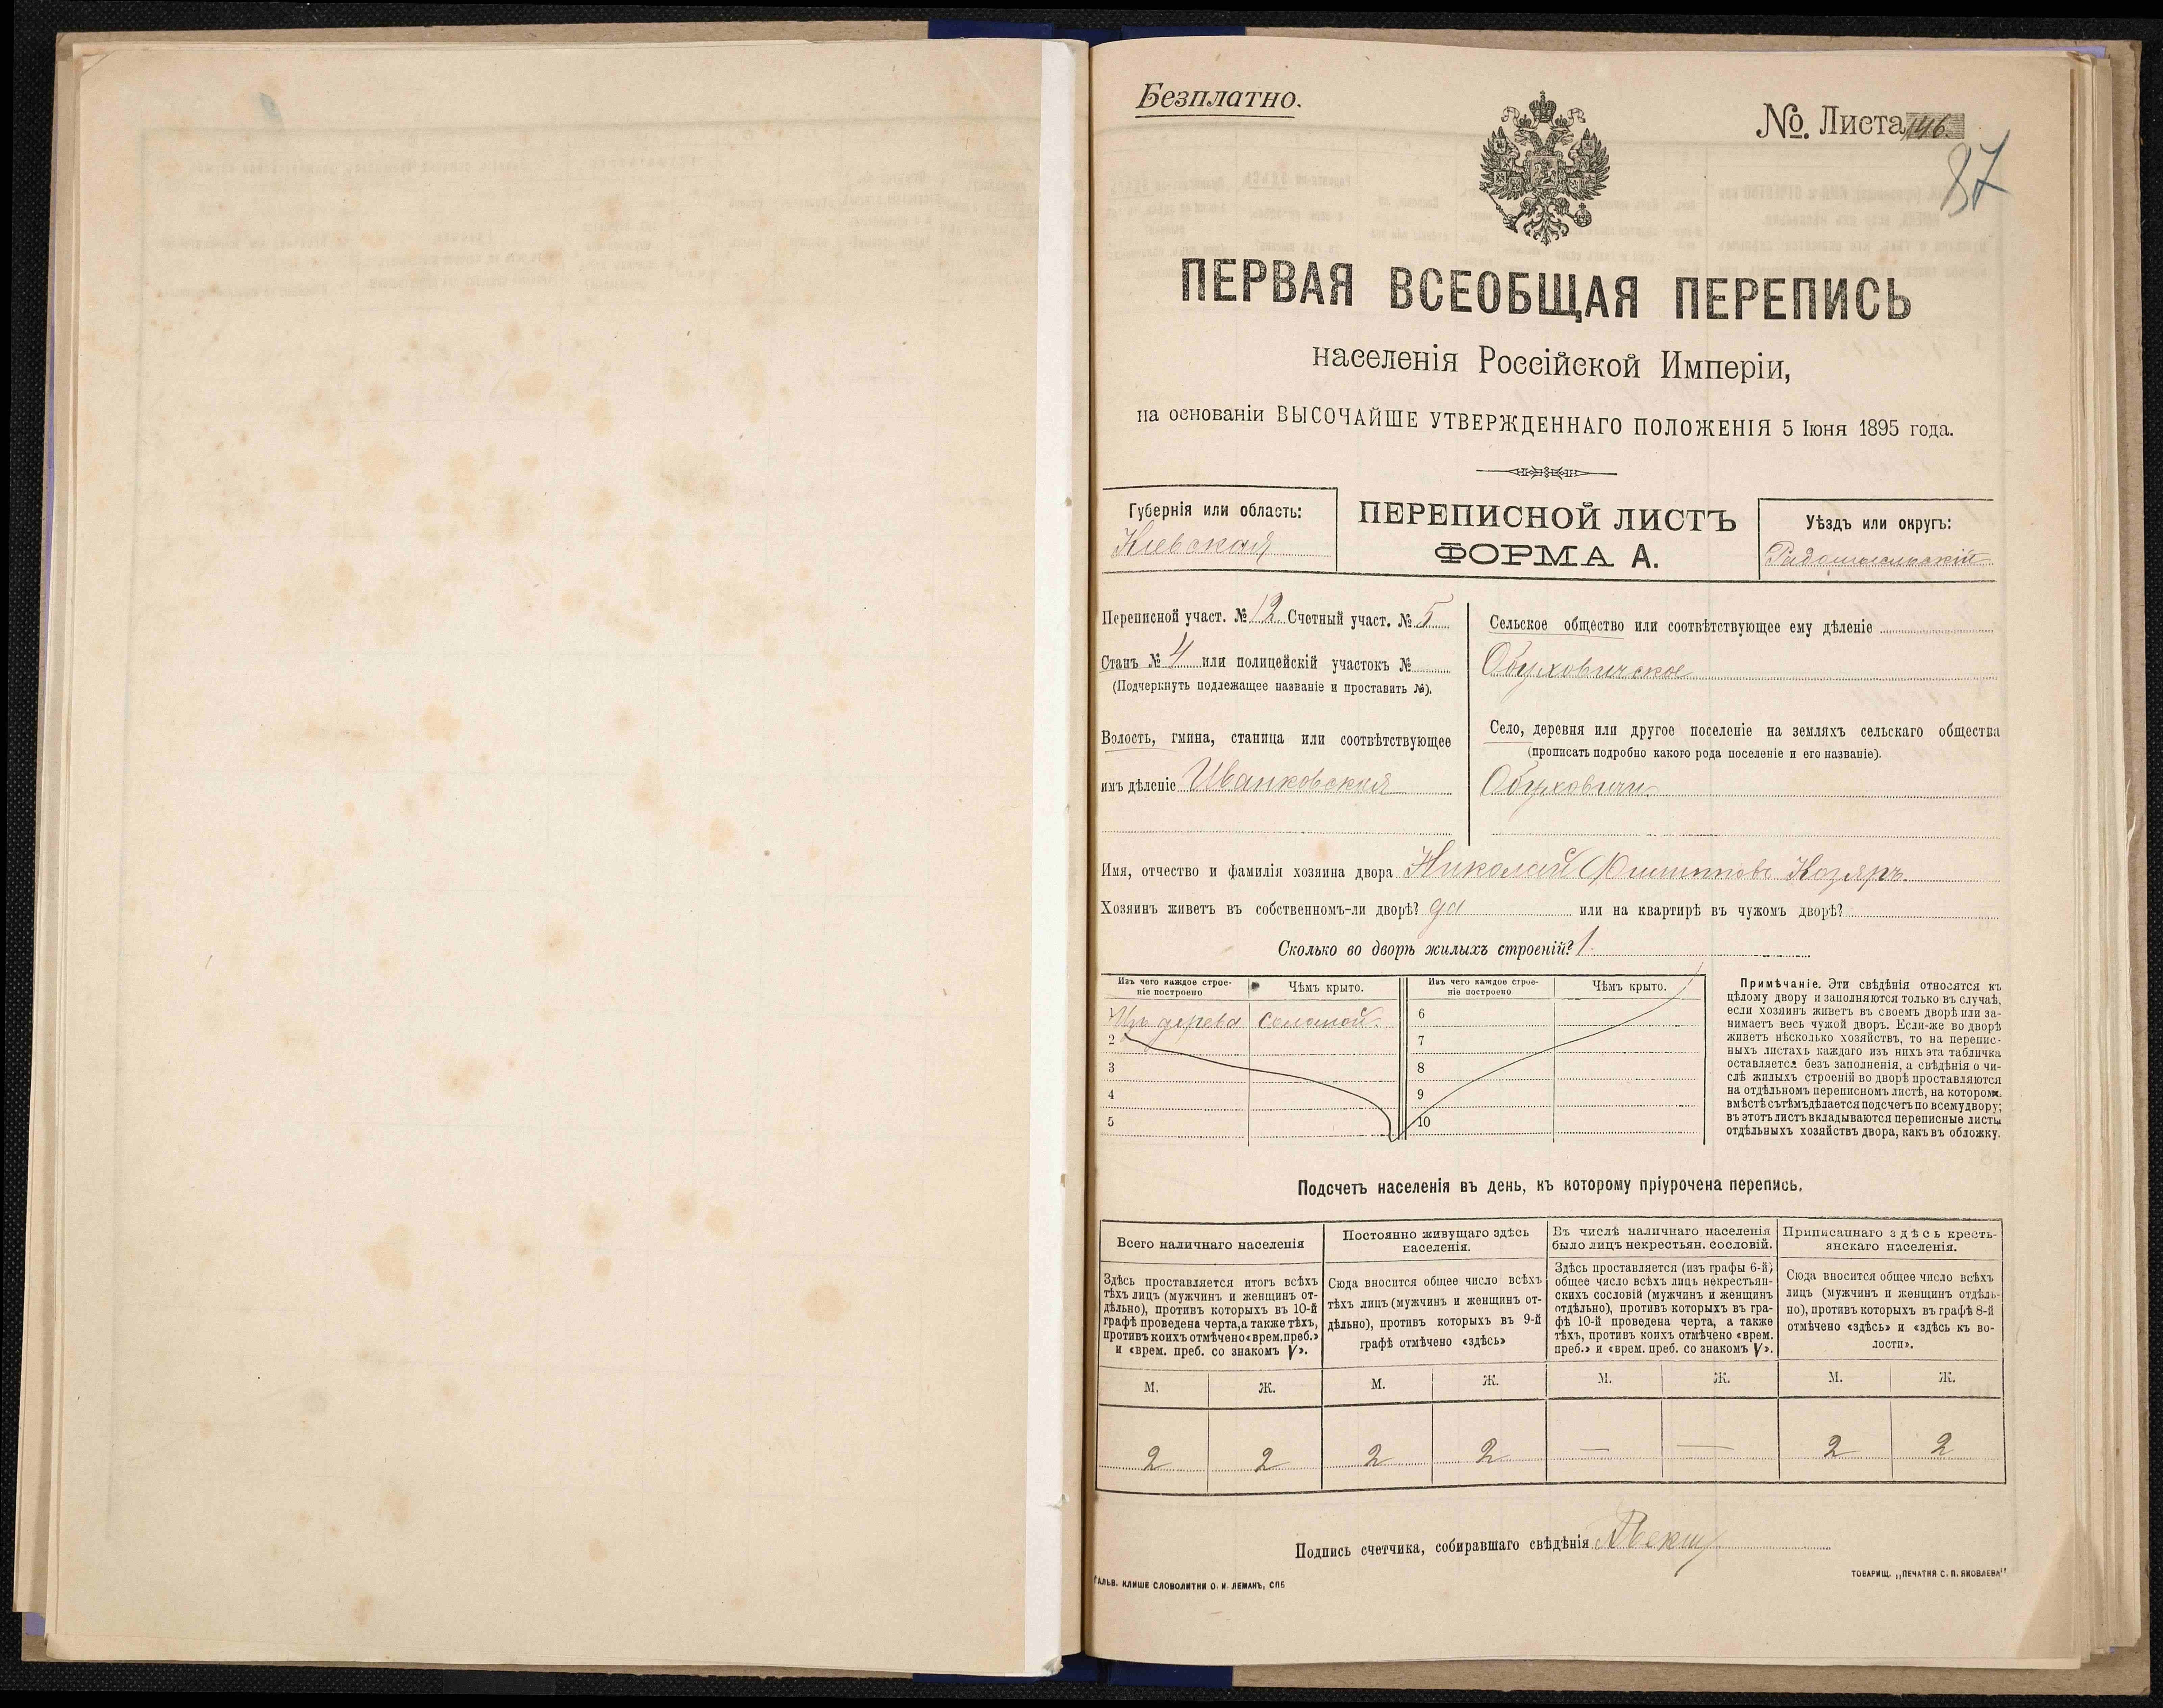 Безплатно.
№. Листа 146.
87
ПЕРВАЯ ВСЕОБЩАЯ ПЕРЕПИСЬ
населенія Россійской Имперіи,
на основаніи ВЫСОЧАЙШЕ УТВЕРЖДЕННАГО ПОЛОЖЕНІЯ 5 Іюня 1895 года.
Губернія или область:
Кіевская
ПЕРЕПИСНОЙ ЛИСТЪ
ФОРМА А.
Уѣздъ или округъ:
Радомысльскій
Переписной участ. № 12 Счетный участ. № 5
Станъ № 4 или полицейскій участокъ №
(Подчеркнуть подлежащее названіе и проставить №).
Волость, гмина, станица или соотвѣтствующее
имъ дѣленіе Иванковская
Сельское общество или соотвѣтствующее ему дѣленіе
Обуховичское
Село, деревня или другое поселеніе на земляхъ сельскаго общества
(прописать подробно какого рода поселеніе и его названіе).
Обуховичи
Имя, отчество и фамилія хозяина двора Николай Филиповъ Козяръ.
Хозяинъ живетъ въ собственномъ-ли дворѣ? да или на квартирѣ въ чужомъ дворѣ?
Сколько во дворѣ жилыхъ строеній? 1.
Изъ чего каждое строе-
ніе построено
Чѣмъ крыто.
Изъ чего каждое строе-
ніе построено
Чѣмъ крыто.
Изъ дерева соломой.
6
2
7
3
8
4
9
5
10
Примѣчаніе. Эти свѣдѣнія относятся къ
цѣлому двору и заполняются только въ случаѣ,
если хозяинъ живетъ въ своемъ дворѣ или за-
нимаетъ весь чужой дворъ. Если-же во дворѣ
живетъ нѣсколько хозяйствъ, то на перепис-
ныхъ листахъ каждаго изъ нихъ эта табличка
оставляется безъ заполненія, а свѣдѣнія о чи-
слѣ жилыхъ строеній во дворѣ проставляются
на отдѣльномъ переписномъ листѣ, на которомъ
вмѣстѣ съ тѣмъ дѣлается подсчетъ по всему двору;
въ этотъ листъ вкладываются переписные листы
отдѣльныхъ хозяйствъ двора, какъ въ обложку.
Подсчетъ населенія въ день, къ которому пріурочена перепись.
Всего наличнаго населенія
Здѣсь проставляется итогъ всѣхъ
тѣхъ лицъ (мужчинъ и женщинъ от-
дѣльно), противъ которыхъ въ 10-й
графѣ проведена черта, а также тѣхъ,
противъ коихъ отмѣчено «врем. преб.»
и «врем. преб. со знакомъ V».
Постоянно живущаго здѣсь
населенія.
Сюда вносится общее число всѣхъ
тѣхъ лицъ (мужчинъ и женщинъ от-
дѣльно), противъ которыхъ въ 9-й
графѣ отмѣчено «здѣсь»
Въ числѣ наличнаго населенія
было лицъ некрестьян. сословій.
Здѣсь проставляется (изъ графы 6-й)
общее число всѣхъ лицъ некрестьян-
скихъ сословій (мужчинъ и женщинъ
отдѣльно), противъ которыхъ въ гра-
фѣ 10-й проведена черта, а также
тѣхъ, противъ коихъ отмѣчено «врем.
преб.» и «врем. преб. со знакомъ V».
Приписаннаго здѣсь кресть-
янскаго населенія.
Сюда вносится общее число всѣхъ
лицъ (мужчинъ и женщинъ отдѣль-
но), противъ которыхъ въ графѣ 8-й
отмѣчено «здѣсь» и «здѣсь къ во-
лости».
М. Ж. М. Ж. М. Ж. М. Ж.
2 2 2 2 — — 2 2
Подпись счетчика, собиравшаго свѣдѣнія
ГАЛЬВ. КЛИШЕ СЛОВОЛИТНИ О. И. ЛЕМАНЪ, СПБ
ТОВАРИЩ. „ПЕЧАТНЯ С. П. ЯКОВЛЕВА"